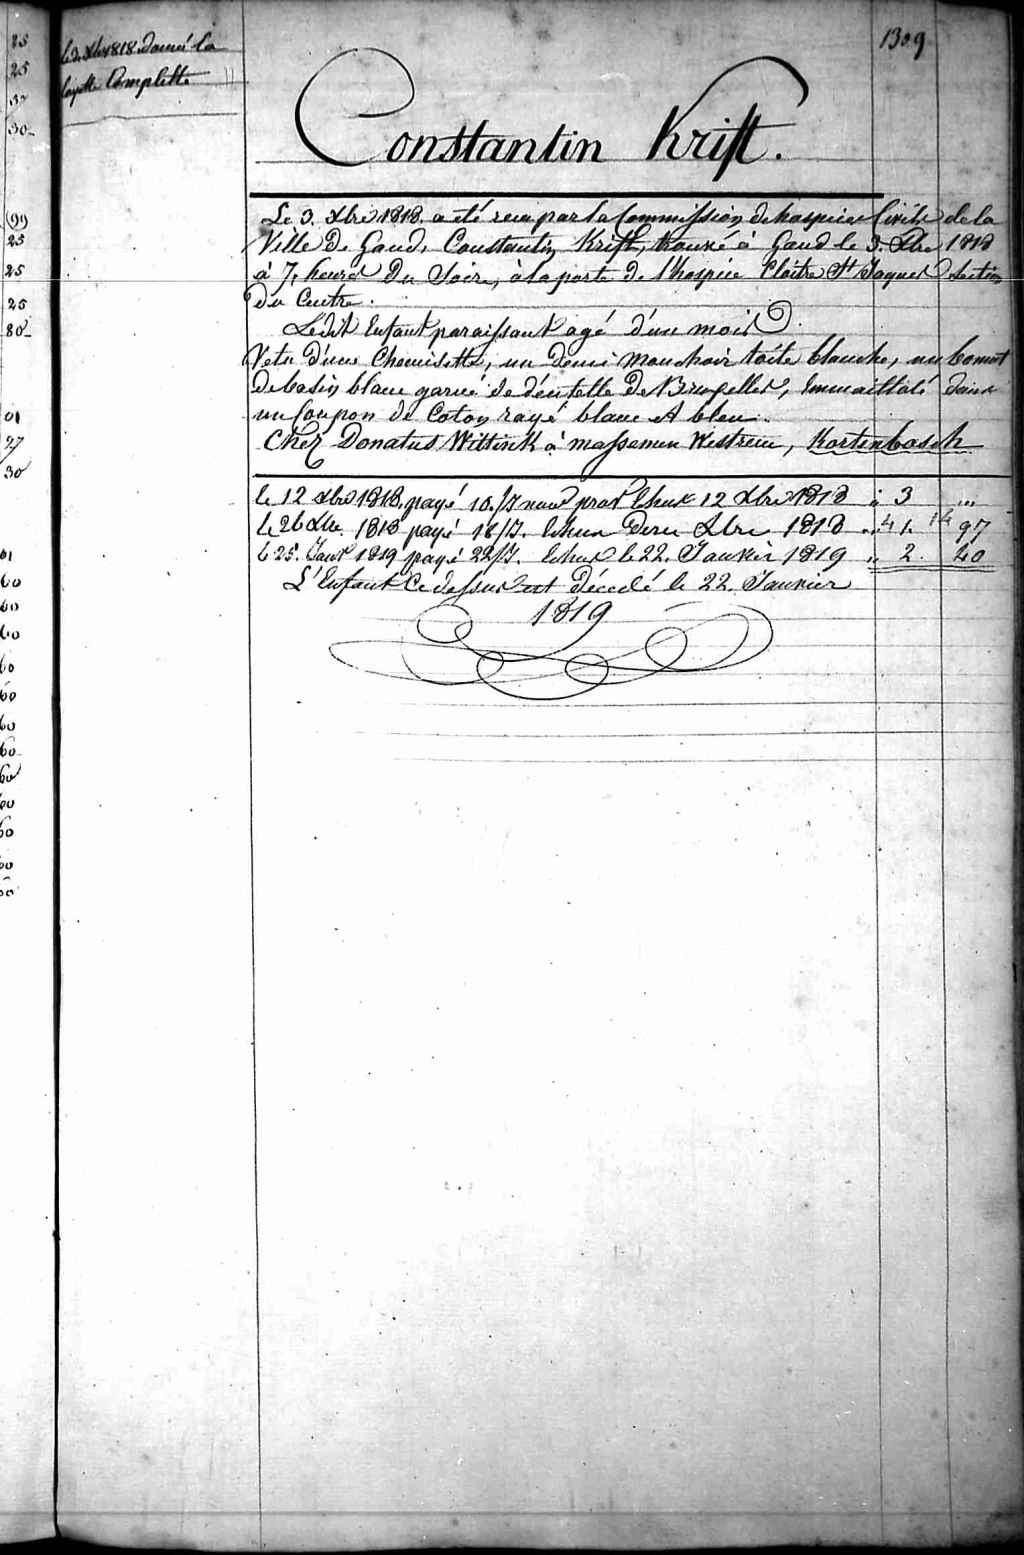 1309
le 3. Xbre 1818 donné la
layette Complette
Constantin Krift.
Le 3. Xbre 1818. a été reçu par la Commission de hospices Civils de la
Ville de Gand, Constantin Krift, trouvé à Gand le 3. Xbre 1818
à 7, heures du Soire, à la porte de l'hospice Cloitre St Jaques Section
du Centre.
Ledit Enfant paraissant agé d'un mois
Vetu d'une Chemisette, un demi mouchoir toile blanche, un bonnet
de basin blanc garnié de déntelle de Bruxelles, Emmailloté dans
un Coupon de Coton rayé blanc et bleu.
Chez Donatus Wittink à massemen Westrem, Kortenbosch
le 12 Xbre 1818. payé 10./7 pour Echus 12 Xbre 1818 " 3 "
le 26 Xbre 1818 payé 18/7. Echus Xbre 1818 " 4 14 97
le 25. Janvr 1819 payé 22/7. Echus le 22. Janvier 1819 " 2. 20
L'Enfant Ce dessus est décedé le 22. Janvier
1819
25
25
37
30
(99)
25
25
25
80
01
27
30
01
60
60
60
60
60
60
60
60
60
60
60
60